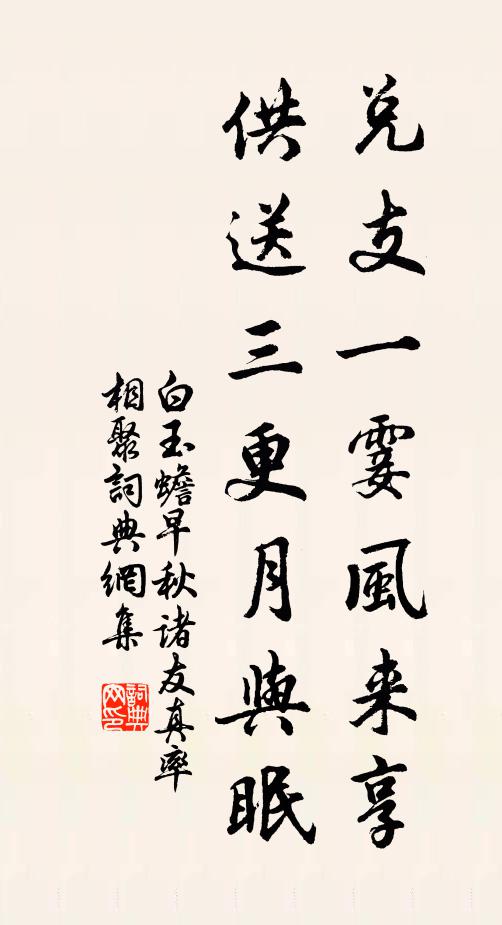 兑支一霎風来享
供送三更月與眠
白玉蟾早秋諸友真率
相聚詞典網集
詞典
网印